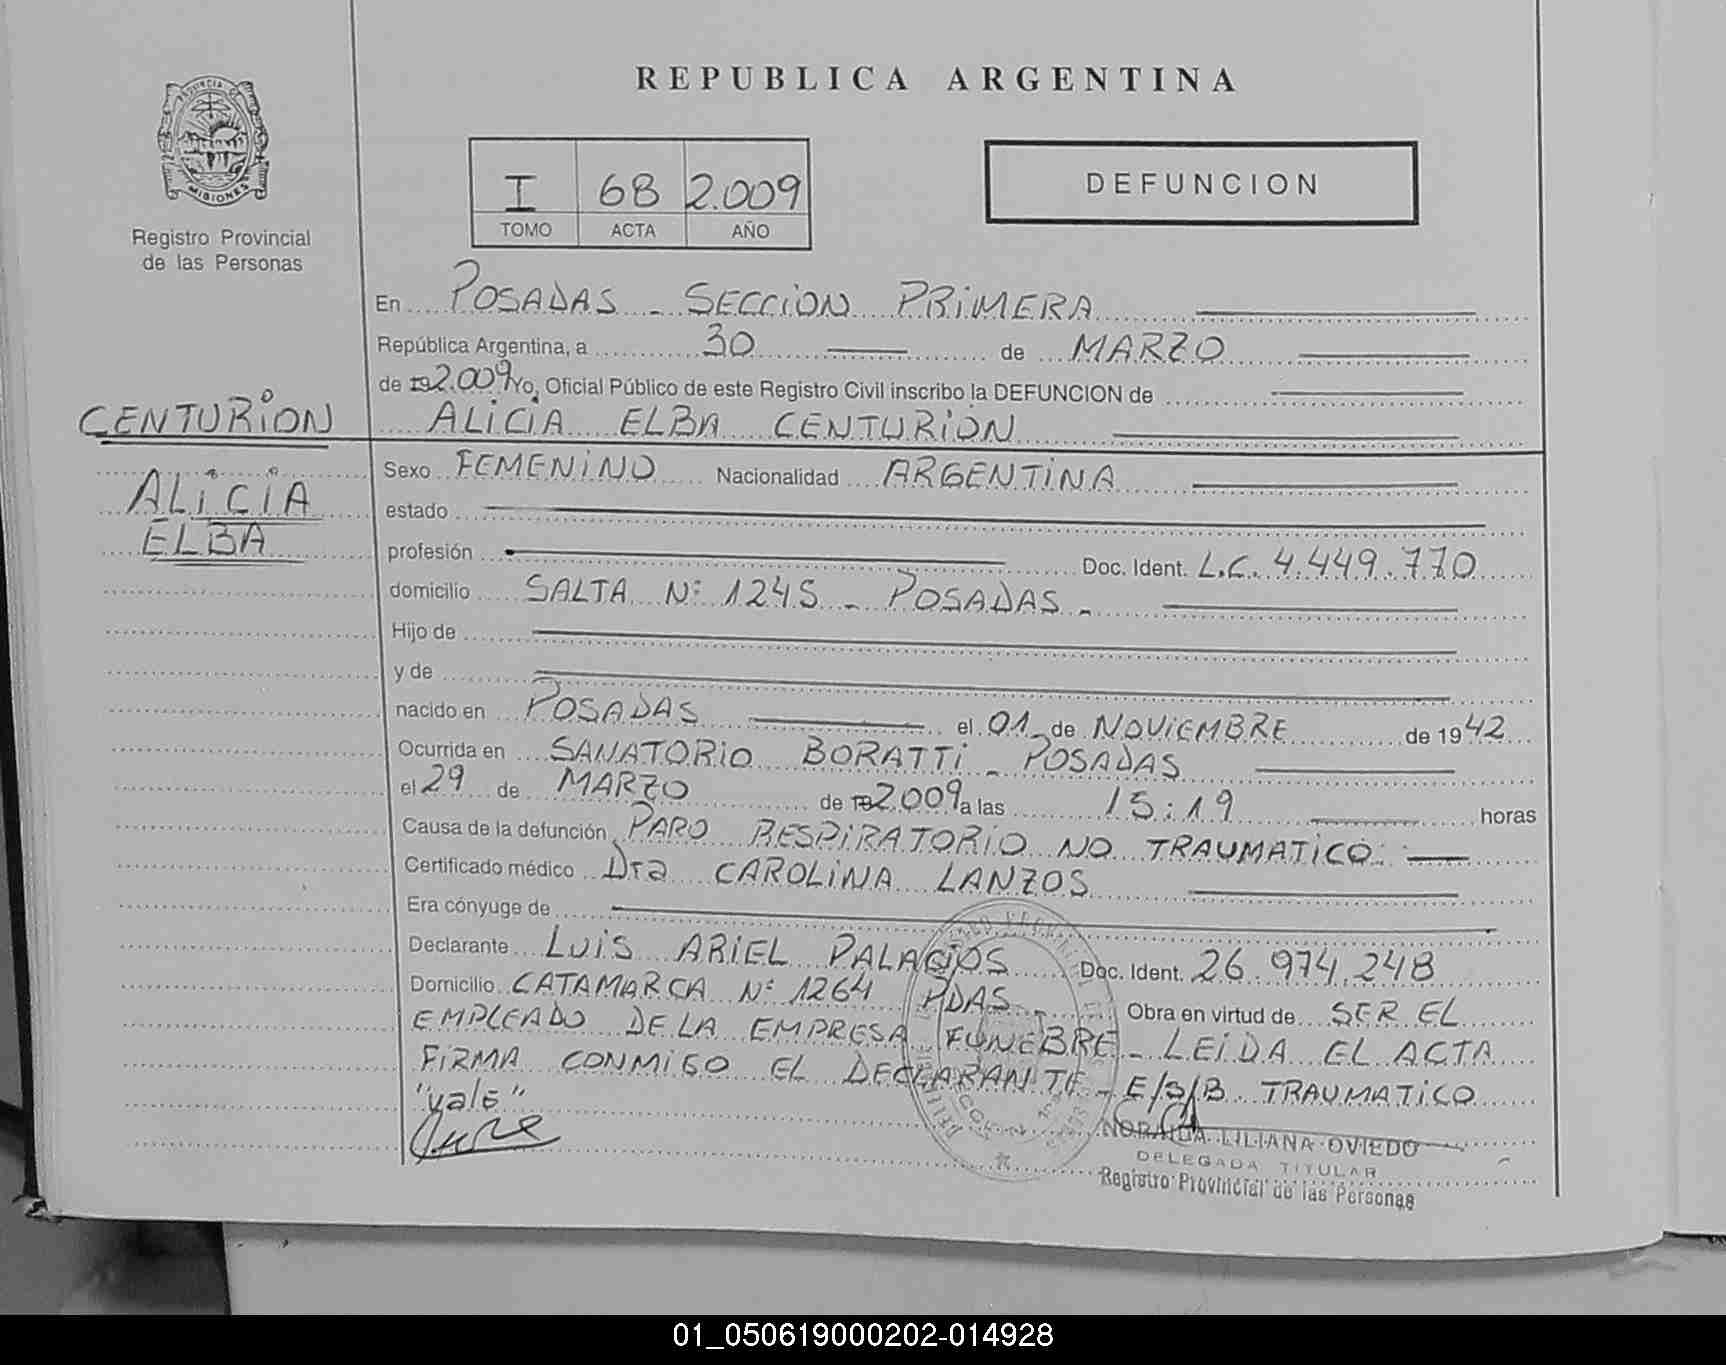 REPUBLICA ARGENTINA
PROVINCIA DE
MISIONES
Registro Provincial
de las Personas
I 68 2.009
TOMO ACTA AÑO
DEFUNCION
En POSADAS - SECCION PRIMERA
República Argentina, a 30 de MARZO
de 19 2.009 Yo, Oficial Público de este Registro Civil inscribo la DEFUNCION de
CENTURION
ALICIA
ELBA
ALICIA ELBA CENTURION
Sexo FEMENINO Nacionalidad ARGENTINA
estado
profesión Doc. Ident. L.C. 4.449.770
domicilio SALTA Nº 1245 - POSADAS -
Hijo de
y de
nacido en POSADAS el 01 de NOVIEMBRE de 1942
Ocurrida en SANATORIO BORATTI - POSADAS
el 29 de MARZO de 19 2.009 a las 15:19 horas
Causa de la defunción PARO RESPIRATORIO NO TRAUMATICO.
Certificado médico Dra CAROLINA LANZOS
Era cónyuge de
Declarante LUIS ARIEL PALACIOS Doc. Ident. 26.974.248
Domicilio CATAMARCA Nº 1264 PDAS - Obra en virtud de SER EL
EMPLEADO DE LA EMPRESA FUNEBRE - LEIDA EL ACTA
FIRMA CONMIGO EL DECLARANTE - E/S/B TRAUMATICO
"vale"
NORAIDA LILIANA OVIEDO
DELEGADA TITULAR
Registro Provincial de las Personas
01_050619000202-014928